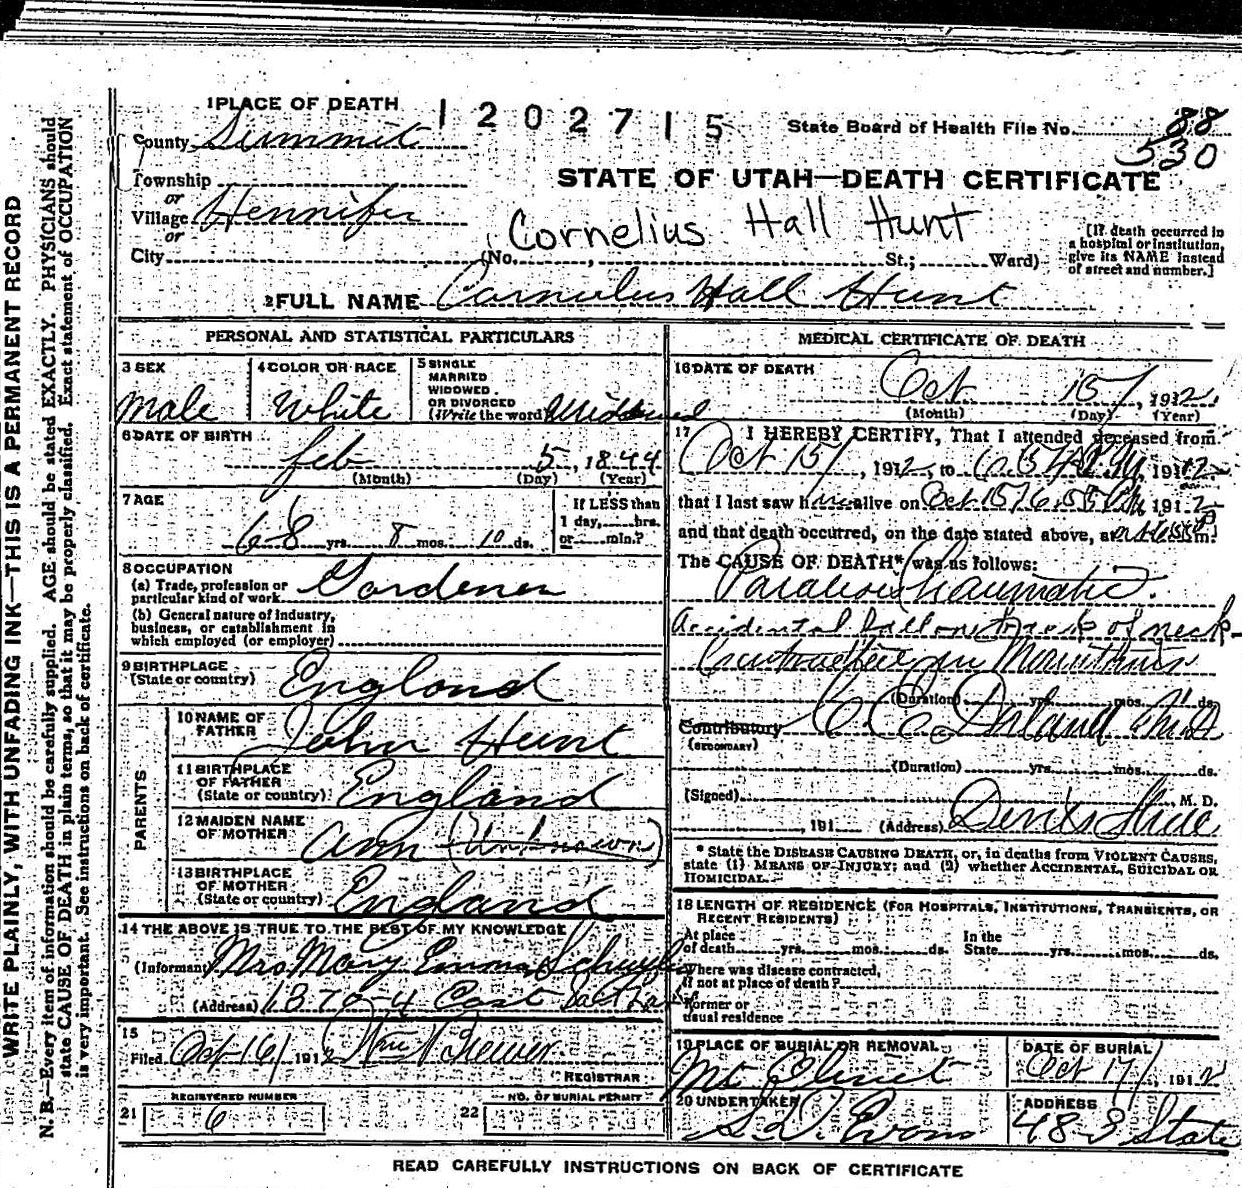 1 PLACE OF DEATH
1202715
State Board of Health File No. 88
530
County Summit
Township
or
Village Hennifer
or
City
STATE OF UTAH—DEATH CERTIFICATE
Cornelius Hall Hunt
(No. , St.; Ward)
[If death occurred in
a hospital or institution,
give its NAME instead
of street and number.]
2 FULL NAME Cornelius Hall Hunt
PERSONAL AND STATISTICAL PARTICULARS
3 SEX
Male
4 COLOR OR RACE
White
5 SINGLE
MARRIED
WIDOWED
OR DIVORCED
(Write the word) Widowed
6 DATE OF BIRTH
Feb 5, 1844
(Month) (Day) (Year)
7 AGE
68 yrs. 8 mos. 10 ds.
If LESS than
1 day, hrs.
or min.?
8 OCCUPATION
(a) Trade, profession or
particular kind of work Gardener
(b) General nature of industry,
business, or establishment in
which employed (or employer)
9 BIRTHPLACE
(State or country) England
10 NAME OF
FATHER John Hunt
PARENTS
11 BIRTHPLACE
OF FATHER
(State or country) England
12 MAIDEN NAME
OF MOTHER Ann (Unknown)
13 BIRTHPLACE
OF MOTHER
(State or country) England
14 THE ABOVE IS TRUE TO THE BEST OF MY KNOWLEDGE
(Informant) Mrs Mary Emma
(Address) 1370-4 East Salt Lake
15
Filed Oct 16, 1912 Wm
REGISTRAR
REGISTERED NUMBER
21 6
NO. OF BURIAL PERMIT
22
MEDICAL CERTIFICATE OF DEATH
16 DATE OF DEATH
Oct 15, 1912
(Month) (Day) (Year)
17 I HEREBY CERTIFY, That I attended deceased from
Oct 15, 1912, to , 1912
that I last saw him alive on Oct 15 , 1912
and that death occurred, on the date stated above, at m.
The CAUSE OF DEATH* was as follows:
Traumatic.
Accidental fall on back of neck
(Duration) yrs. mos. ds.
Contributory
(SECONDARY)
(Duration) yrs. mos. ds.
(Signed) , M. D.
, 191 (Address) Devils Slide
* State the DISEASE CAUSING DEATH, or, in deaths from VIOLENT CAUSES,
state (1) MEANS OF INJURY; and (2) whether ACCIDENTAL, SUICIDAL OR
HOMICIDAL.
18 LENGTH OF RESIDENCE (FOR HOSPITALS, INSTITUTIONS, TRANSIENTS, OR
RECENT RESIDENTS)
At place
of death yrs. mos. ds.
In the
State yrs. mos. ds.
Where was disease contracted,
if not at place of death?
Former or
usual residence
19 PLACE OF BURIAL OR REMOVAL
Mt Olivet
DATE OF BURIAL
Oct 17, 1912
20 UNDERTAKER
S. D. Evans
ADDRESS
48 S State
READ CAREFULLY INSTRUCTIONS ON BACK OF CERTIFICATE
WRITE PLAINLY, WITH UNFADING INK—THIS IS A PERMANENT RECORD
N. B.—Every item of information should be carefully supplied. AGE should be stated EXACTLY. PHYSICIANS should
state CAUSE OF DEATH in plain terms, so that it may be properly classified. Exact statement of OCCUPATION
is very important. See instructions on back of certificate.